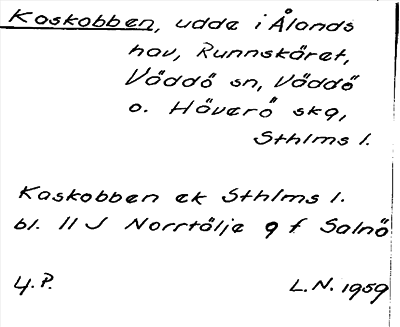 Kaskobben, udde i Ålands
hav, Runnskäret,
Väddö sn, Väddö
o. Häverö skg,
Sthlms l.
Kaskobben ek Sthlms l.
bl. 11 J Norrtälje 9 f Salnö
4. P.
L.N. 1959